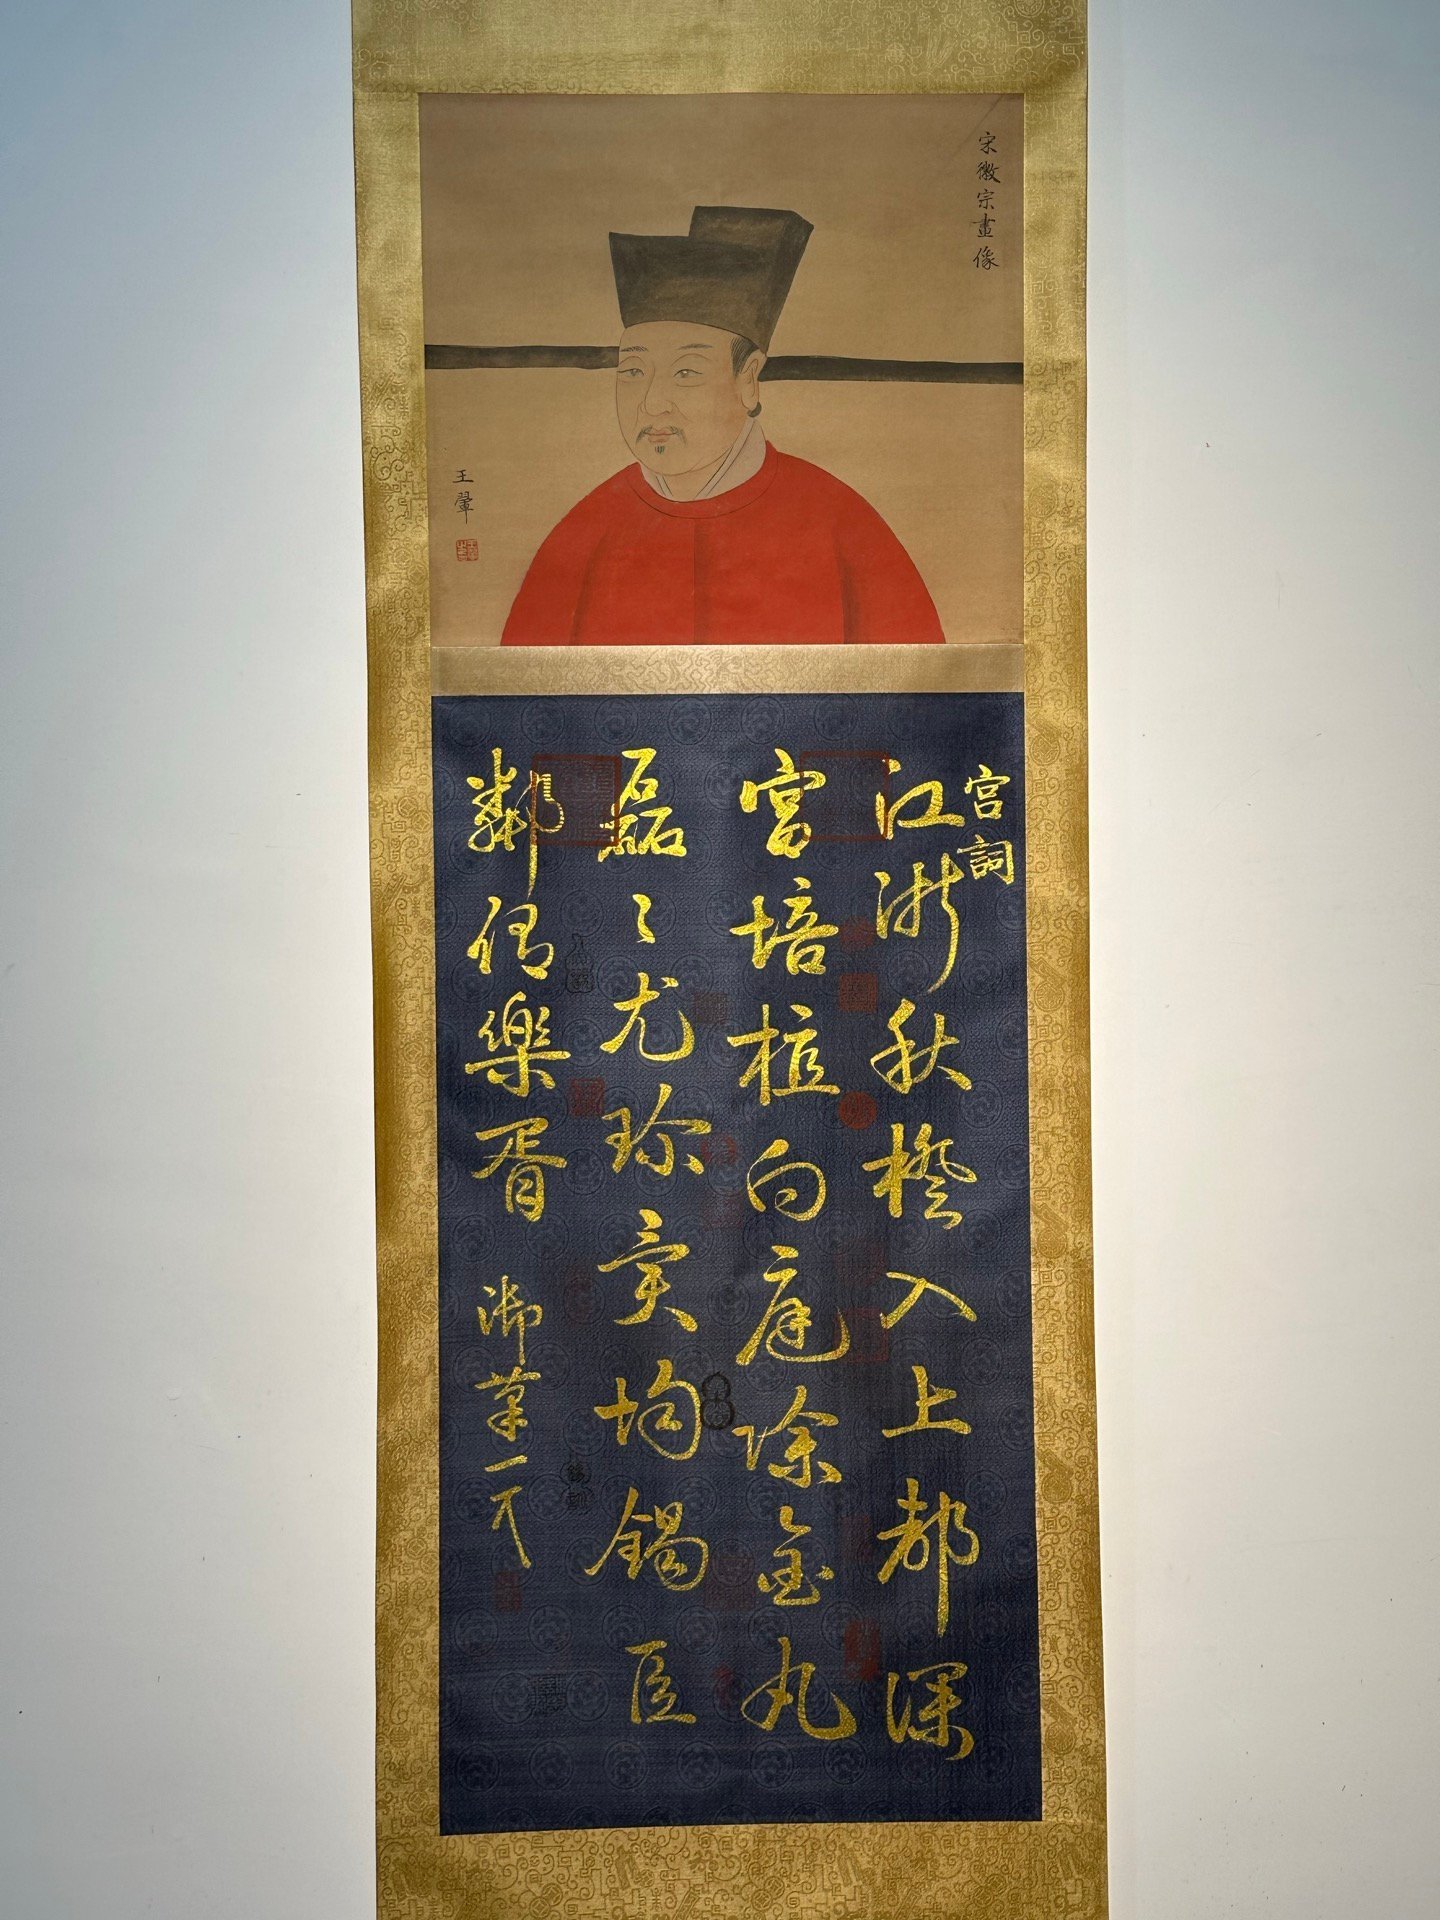 宋徽宗畫像
王翬
宮詞
江浙秋橙入上都深
宮培植向庭除金丸
磊〻尤珍実均錫臣
鄰侶樂胥
御筆一天